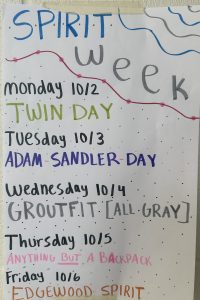 SPIRIT
week
monday 10/2
TWIN DAY
Tuesday 10/3
ADAM SANDLER DAY
Wednesday 10/4
GROUTFIT [ALL GRAY]
Thursday 10/5
ANYTHING BUT A BACKPACK
Friday 10/6
EDGEWOOD SPIRIT